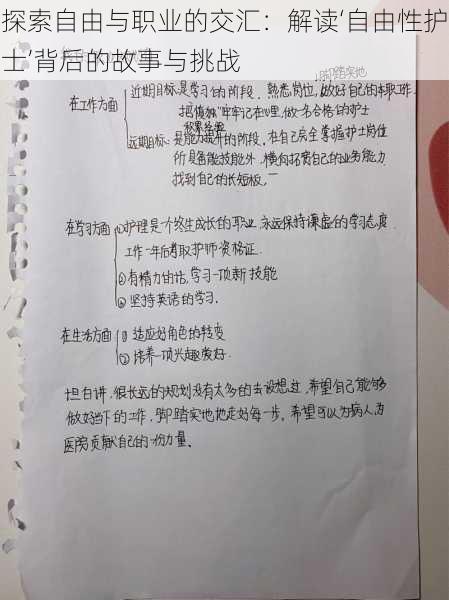 探索自由与职业的交汇：解读‘自由性护
士’背后的故事与挑战
脚踏实地
在工作方面
近期目标：是学习的阶段，熟悉岗位，做好自己的本职工作，
把"慎独"牢牢记在心里，做一名合格的护士
积累经验
远期目标：是能力提升的阶段，在自己完全掌握护士岗位
所具备能技能外，横向拓宽自己的业务能力
找到自己的长短板。
在学习方面
①护理是一个终生成长的职业，永远保持谦虚的学习态度
工作一年后考取护师资格证
②有精力的话，学习一项新技能
③坚持英语的学习。
在生活方面
① 适应好角色的转变
② 培养一项兴趣爱好.
坦白讲，很长远的规划没有太多的去设想过，希望自己能够
做好当下的工作，脚踏实地地走好每一步，希望可以为病人为
医院贡献自己的一份力量。